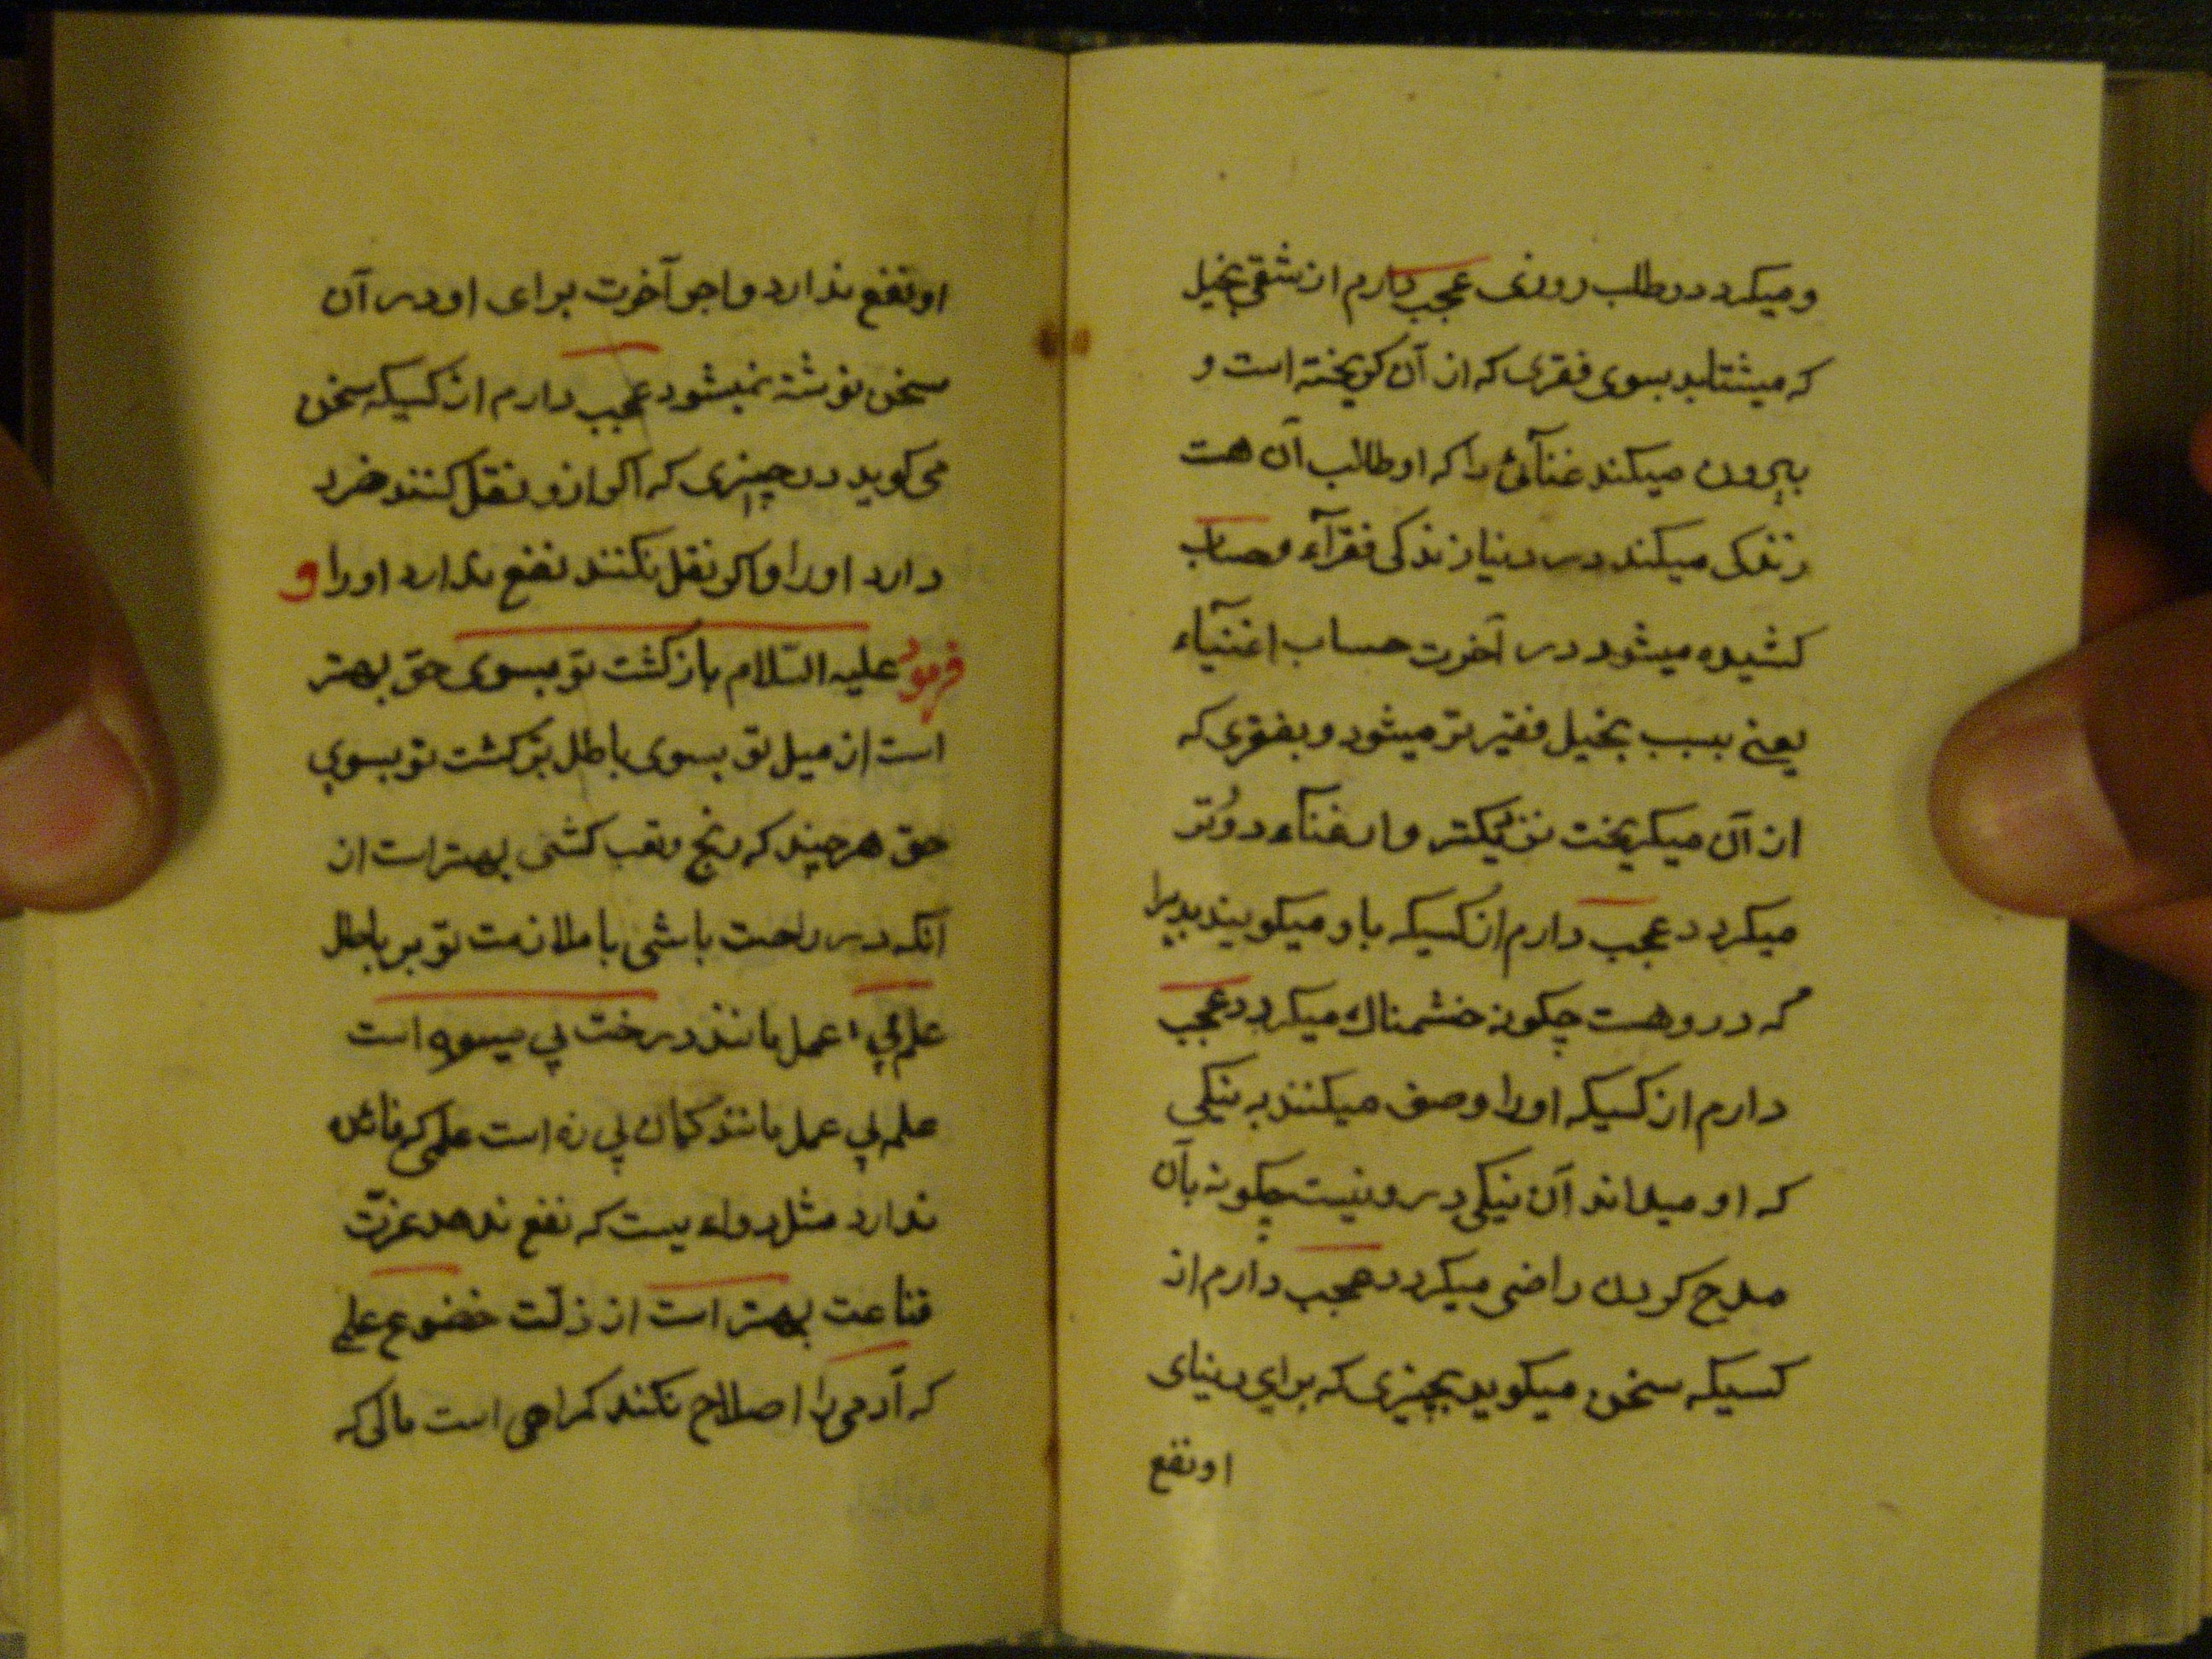 ومیکرد در طلب روزی عجب دارم از شقی بخیل
که میشتابد بسوی فقری که از آن کریخته است و
بیرون میکند غنآئ را که او طالب آن هست
زندکی میکند در دنیا زندکی فقرآء و حساب
کشیده میشود در آخرت حساب اغنیآء
یعنی ببب بخیل فقیر تر میشود و بفقری که
از آن میکریخت نزیکتر و از غنآء دوُتر
میکردد عجب دارم از کسیکه باو میکویند بدیرا
که درو هست چکونه خشمناك میکردد عجب
دارم از کسیکه اورا وصف میکنند به نیکی
که او میداند آن نیکی درو نیست چکونه بآن
مدح کردن راضی میکردد عجب دارم از
کسیکه سخن میکوید بچیزی که برای دنیای
او نفع
او نفع ندارد و اجر آخرت برای او در آن
سخن نوشته نمیشود عجب دارم از کسیکه سخن
می کوید در چیزی که اکر ازو نقل کنند ضرر
دارد اورا و اکر نقل نکنند نفع ندارد اورا و
فرمود علیه السّلام بازکشت تو بسوی حق بهتر
است از میل تو بسوی باطل برکشت تو بسوی
حق هر چند که رنج و تعب کشی بهتر است از
آنکه در راحت باشی با ملازمت تو بر باطل
علم بی عمل مانند درخت بی میوه است
علم بی عمل مانند کمان بی زه است علمی که فائده
ندارد مثل دواء یست که نفع ندهد عزّت
قناعت بهتر است از ذلّت خضوع علمی
که آدمی را اصلاح نکند کمراهی است مالی که